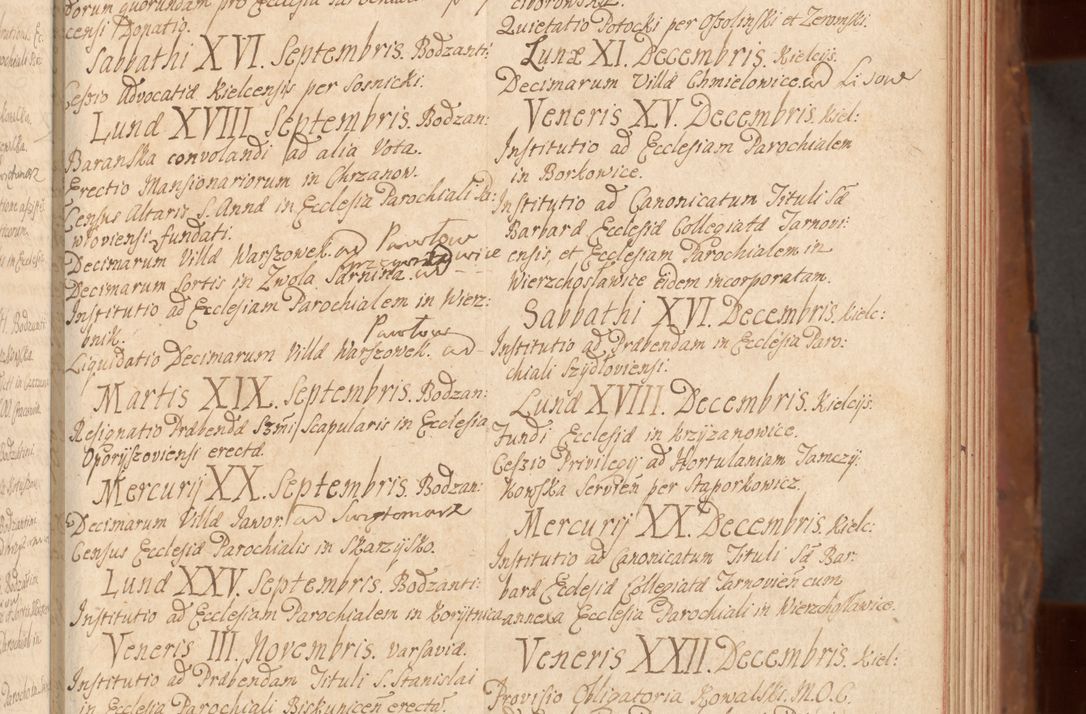 dorum quorundam pro Ecclesia
censi Donatio.
Sabbathi XVI. Septembris. Bodzanti:
Cessio Advocatiæ Kielcensis per Sosnicki.
Lunæ XVIII. Septembris. Bodzan:
Baranska convolandi ad alia Vota.
Erectio Mansionariorum in Chrzanow.
Census Altaris S. Annæ in Ecclesia Parochiali
wroviensi fundati.
Decimarum Villæ Warszowek. ad Pawłow
Decimarum Sortis in Zwola, Sarnina. ad
Institutio ad Ecclesiam Parochialem in Wierz:
bnik.
Liquidatio Decimarum Villæ Warszowek. ad Pawłow
Martis XIX. Septembris. Bodzan:
Resignatio Præbendæ Szmi Scapularis in Ecclesia
Oporyszoviensi erectæ.
Mercurij XX. Septembris. Bodzan:
Decimarum Villæ Jawor. ad Swiętomarz
Census Ecclesiæ Parochialis in Skarzysko.
Lunæ XXV. Septembris. Bodzanti:
Institutio ad Ecclesiam Parochialem in Korytnica
Veneris III. Novembris. Varsaviæ.
Institutio ad Præbendam Tituli S. Stanislai
in Ecclesia Parochiali Biskunicen erectæ.
Quietatio Potocki per Ossolinski et Zeromski.
Lunæ XI. Decembris. Kielcijs.
Decimarum Villæ Chmielowice. ad Lisow
Veneris XV. Decembris. Kiel:
Institutio ad Ecclesiam Parochialem
in Borkowice.
Institutio ad Canonicatum Tituli Sæ
Barbaræ Ecclesiæ Collegiatæ Tarnovi:
ensis, et Ecclesiam Parochialem in
Wierzchosławice eidem incorporatam.
Sabbathi XVI. Decembris. Kielc:
Institutio ad Præbendam in Ecclesia Paro:
chiali Szydloviensi.
Lunæ XVIII. Decembris. Kielcijs.
Fundi Ecclesiæ in Krzyzanowice.
Cessio Privilegij ad Hortulaniam Tamczy:
kowska Servien per Staporkowicz.
Mercurij XX. Decembris. Kielc:
Institutio ad Canonicatum Tituli Sæ Bar:
baræ Ecclesiæ Collegiatæ Tarnovien cum
annexa Ecclesia Parochiali in Wierzchosławice.
Veneris XXII. Decembris. Kiel:
Provisio Obligatoria Kowalski. M.O.C.